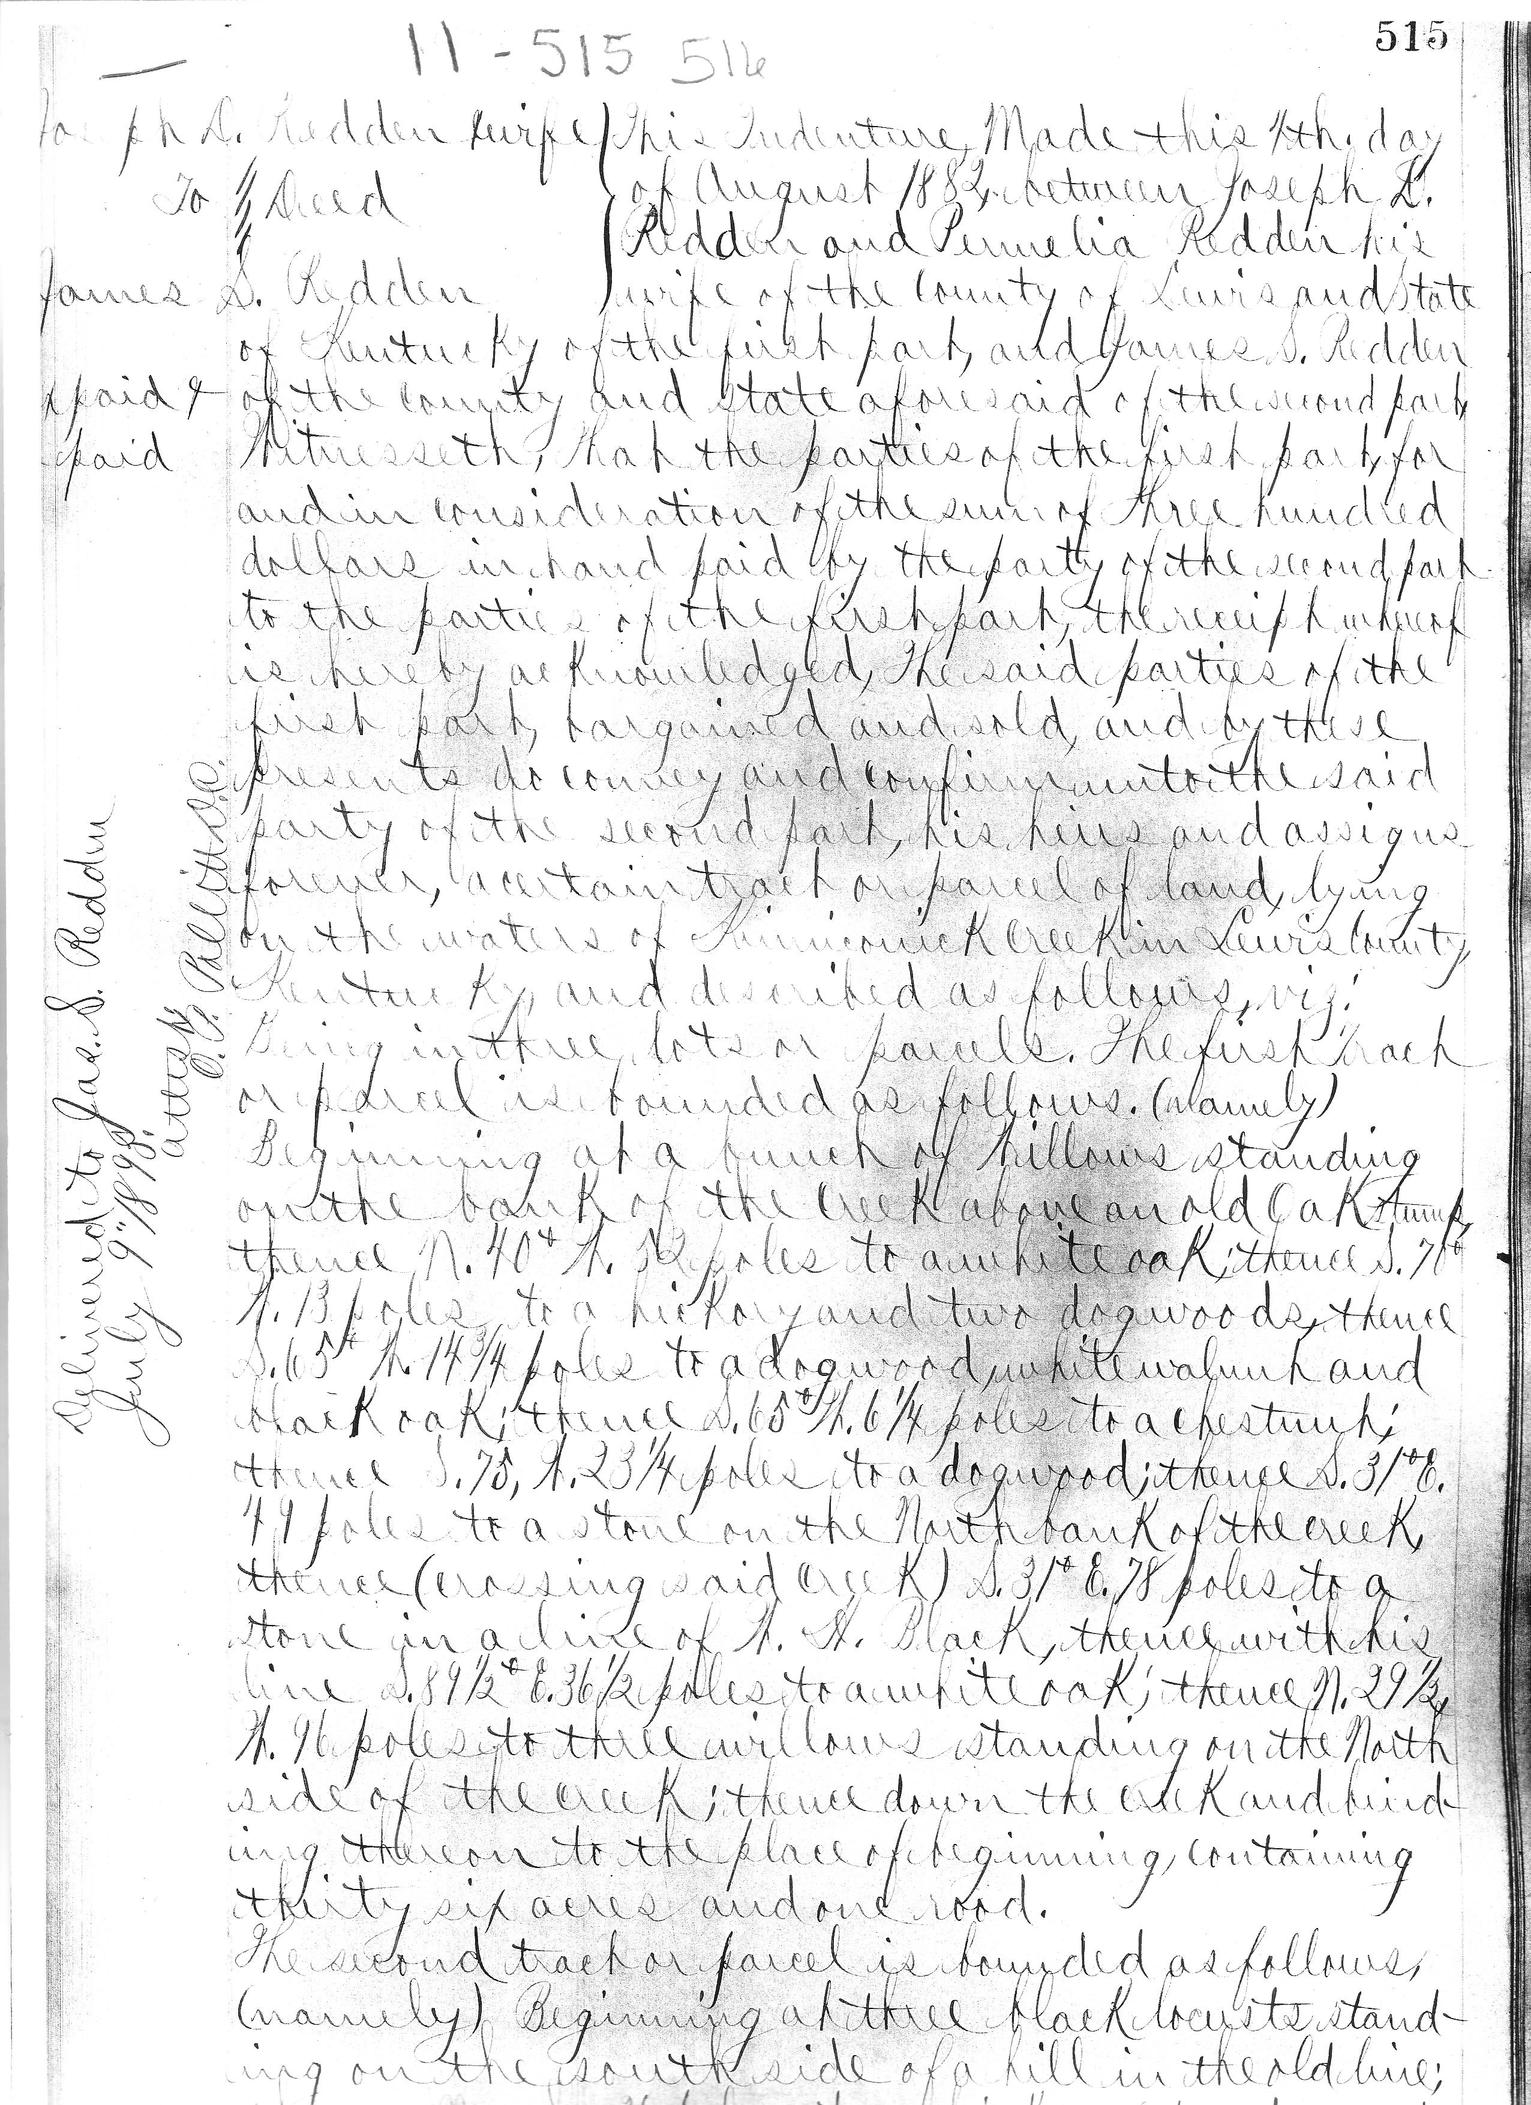 515
11-515 516
Joseph L. Redden & wife
To Deed
James S. Redden
paid &
paid
This Indenture, Made this 4th. day
of August 1882, between Joseph L.
Redden and Permelia Redden his
wife of the County of Lewis and State
of Kentucky of the first part, and James S. Redden
of the county and state aforesaid of the second part,
Witnesseth, That the parties of the first part, for
and in consideration of the sum of Three hundred
dollars in hand paid by the party of the second part
to the parties of the first part, the receipt whereof
is hereby acknowledged, The said parties of the
first part, bargained and sold, and by these
presents do convey and confirm unto the said
party of the second part, his heirs and assigns
forever, a certain tract or parcel of land, lying
on the waters of Kinniconick Creek in Lewis County,
Kentucky, and described as follows, viz:
Being in three lots or parcels. The first tract
or parcel is bounded as follows. (namely)
Beginning at a bunch of Willows standing
on the bank of the Creek above an old Oak stump,
thence N. 40° W. 52 poles to a white oak; thence S. 70°
W. 13 poles to a hickory and two dogwoods, thence
S. 65° W. 14 3/4 poles to a dogwood, white walnut and
black oak; thence S. 65° W. 6 1/4 poles to a chestnut;
thence S. 75, W. 23 1/4 poles to a dogwood; thence S. 31° E.
49 poles to a stone on the North bank of the creek,
thence (crossing said Creek) S. 31° E. 78 poles to a
stone in a line of W. H. Black, thence with his
line S. 89 1/2° E. 36 1/2 poles to a white oak; thence N. 29 1/2,
W. 96 poles to three willows standing on the North
side of the creek; thence down the creek and bind-
ing thereon to the place of beginning, containing
thirty six acres and one rood.
The second tract or parcel is bounded as follows,
(namely) Beginning at three black locusts stand-
ing on the south side of a hill in the old line;
Delivered to Jas. S. Redden
July 9" 1893.
attest
Pollitt D.C.